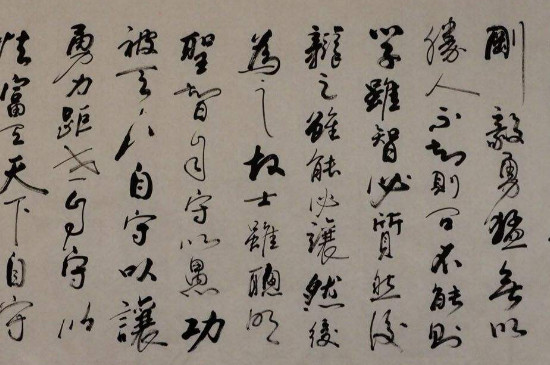 剛毅勇猛無以
勝人不知則問不能則
學雖智必質然後
辯之雖能必讓然後
為之故士雖聰明
聖智自守以愚功
被天下自守以讓
勇力距世自守以
怯富有天下自守